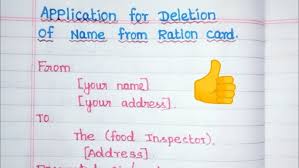 Application for Deletion
of Name from Ration card.
From
[your name]
[your address].
To
The (food Inspector).
[Address]